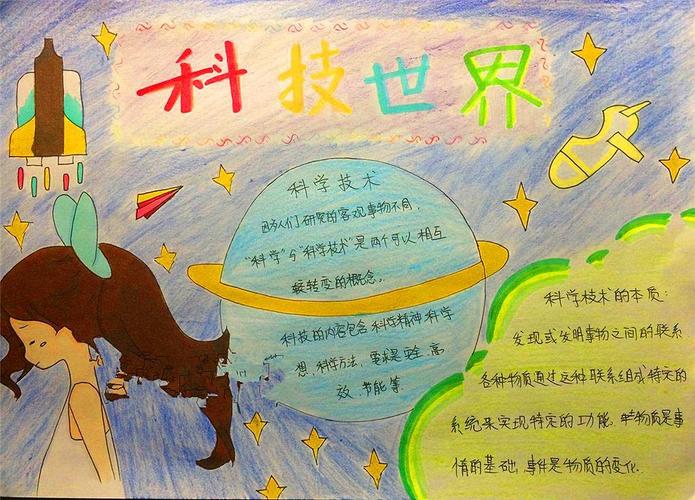 科技世界
科学技术
因为人们研究的客观事物不同，
"科学"与"科学技术"是两个可以相互
转变的概念。
科技的内容包含科学精神科学
想，科学方法，要求是 高
效、节能等
科学技术的本质：
发现或发明事物之间的联系
各种物质通过这种联系组成特定的
系统来实现特定的功能，物质是事
情的基础，事件是物质的变化.